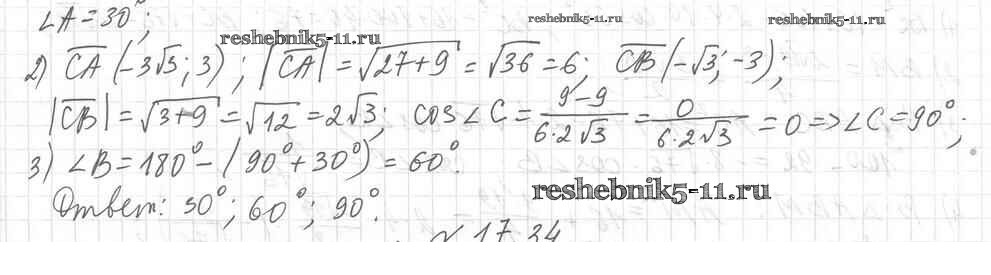 ∠A=30°;
reshebnik5-11.ru reshebnik5-11.ru reshebnik5-11.ru
2) CA (-3√3; 3); |CA| = √27+9 = √36 = 6; CB (-√3; -3);
|CB| = √3+9 = √12 = 2√3; cos∠C = 9-9/6·2√3 = 0/6·2√3 = 0 => ∠C = 90°;
3) ∠B = 180° - (90° + 30°) = 60°.
Ответ: 30°; 60°; 90°.
reshebnik5-11.ru
№17.34